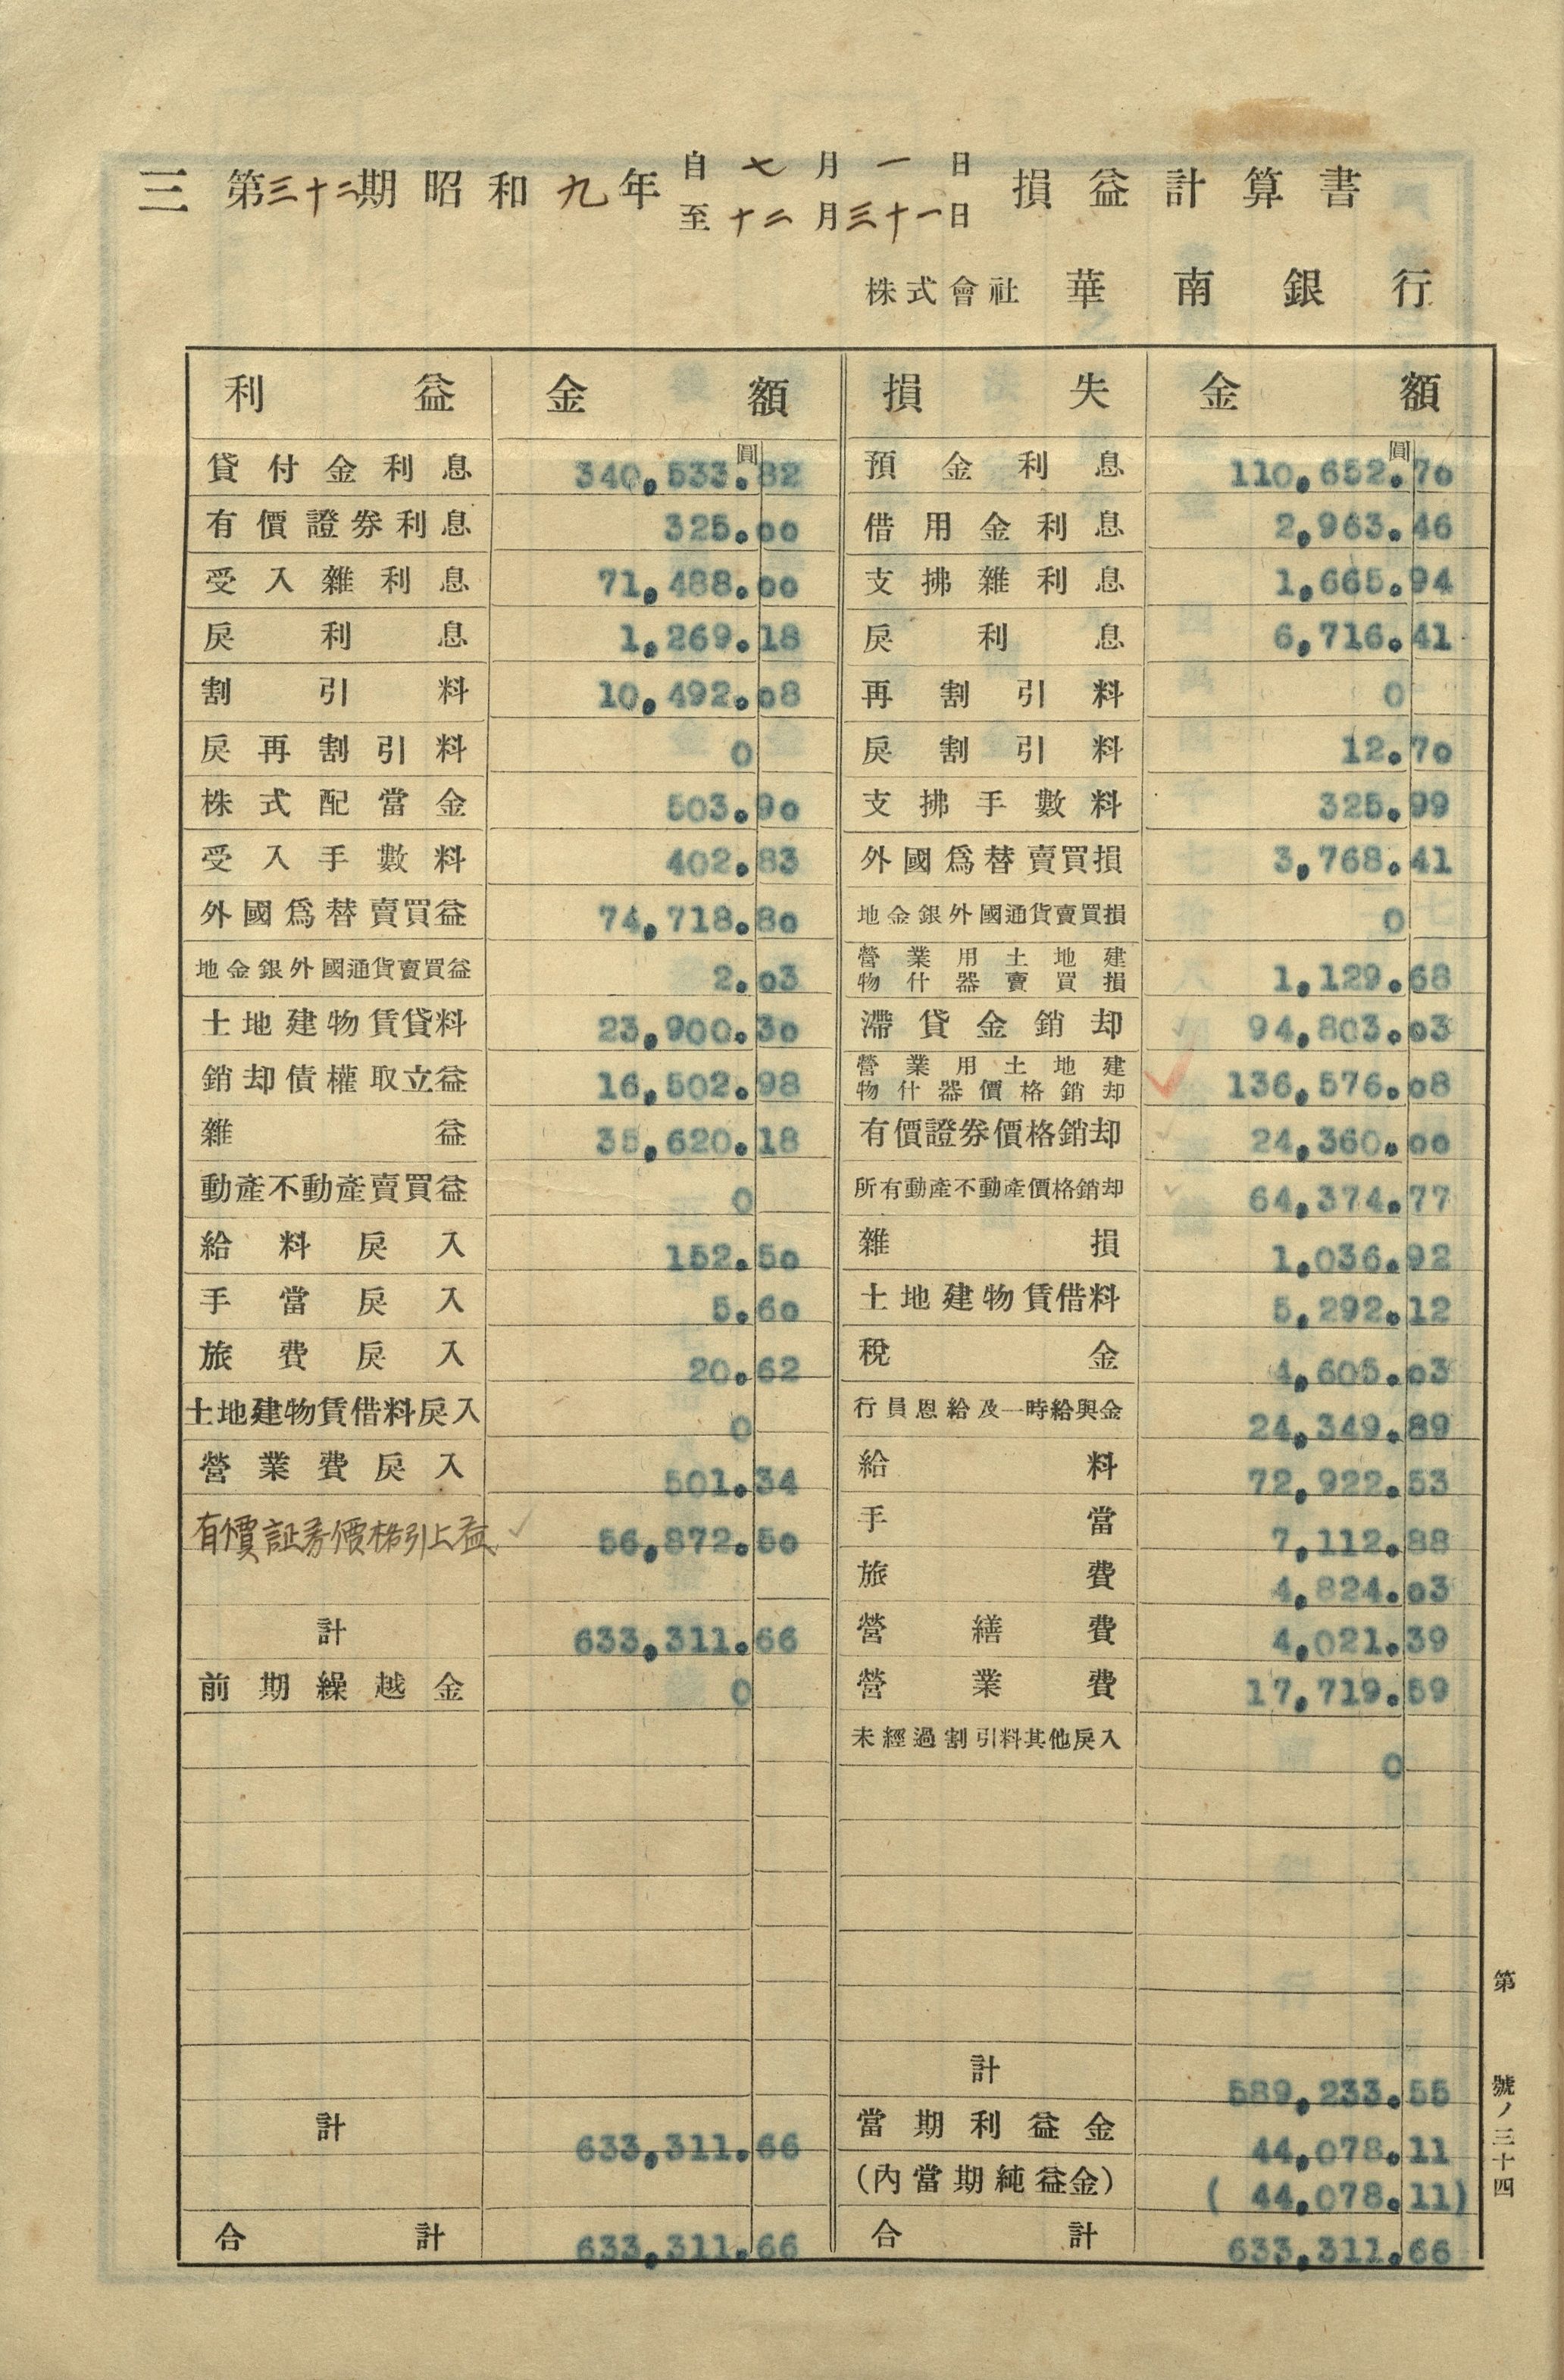 三 第三十二期昭和九年 自七月一日 至十二月三十一日 損益計算書
株式會社 華南銀行
利益 金額
圓
貸付金利息 340,533.82
有價證券利息 325.00
受入雜利息 71,488.00
戾利息 1,269.18
割引料 10,492.08
戾再割引料 0
株式配當金 503.90
受入手數料 402.83
外國爲替賣買益 74,718.80
地金銀外國通貨賣買益 2.03
土地建物賃貸料 23,900.30
銷却債權取立益 16,502.98
雜益 35,620.18
動產不動產賣買益 0
給料戾入 152.50
手當戾入 5.60
旅費戾入 20.62
土地建物賃借料戾入 0
營業費戾入 501.34
有價証券價格引上益 56,872.50
計 633,311.66
前期繰越金 0
計 633,311.66
合計 633,311.66
損失 金額
圓
預金利息 110,652.70
借用金利息 2,963.46
支拂雜利息 1,665.94
戾利息 6,716.41
再割引料 0
戾割引料 12.70
支拂手數料 325.99
外國爲替賣買損 3,768.41
地金銀外國通貨賣買損 0
營業用土地建
物什器賣買損 1,129.68
滯貸金銷却 94,803.03
營業用土地建
物什器價格銷却 136,576.08
有價證券價格銷却 24,360.00
所有動產不動產價格銷却 64,374.77
雜損 1,036.92
土地建物賃借料 5,292.12
稅金 4,605.03
行員恩給及一時給與金 24,349.89
給料 72,922.53
手當 7,112.88
旅費 4,824.03
營繕費 4,021.39
營業費 17,719.59
未經過割引料其他戾入 0
計 589,233.55
當期利益金 44,078.11
(內當期純益金) ( 44,078.11)
合計 633,311.66
第 號ノ三十四